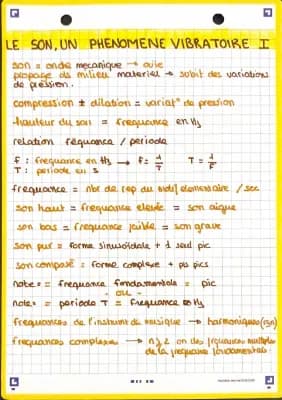 LE SON, UN PHENOMENE VIBRATOIRE I
son = onde mecanique → ouie
propage ds milieu materiel → subit des variations
de pression.
compression ± dilation = variat° de pression
hauteur du son = frequence en Hz
relation fréquence / periode
f : frequence en Hz → f = 1/T T = 1/F
T : periode en s
frequence = nbr de rep du motif elementaire / sec
son haut = frequence elevée = son aigue
son bas = frequence faible = son grave
son pur = forme sinusoïdale + 1 seul pic
son composé = forme complexe + pls pics
note = frequence fondamentale = pic
- ou -
note = periode T = frequence en Hz
frequences de l'instrument de musique → harmoniques
frequences complexe → n≥2 on des frequences multiples
de la frequence fondamentale.